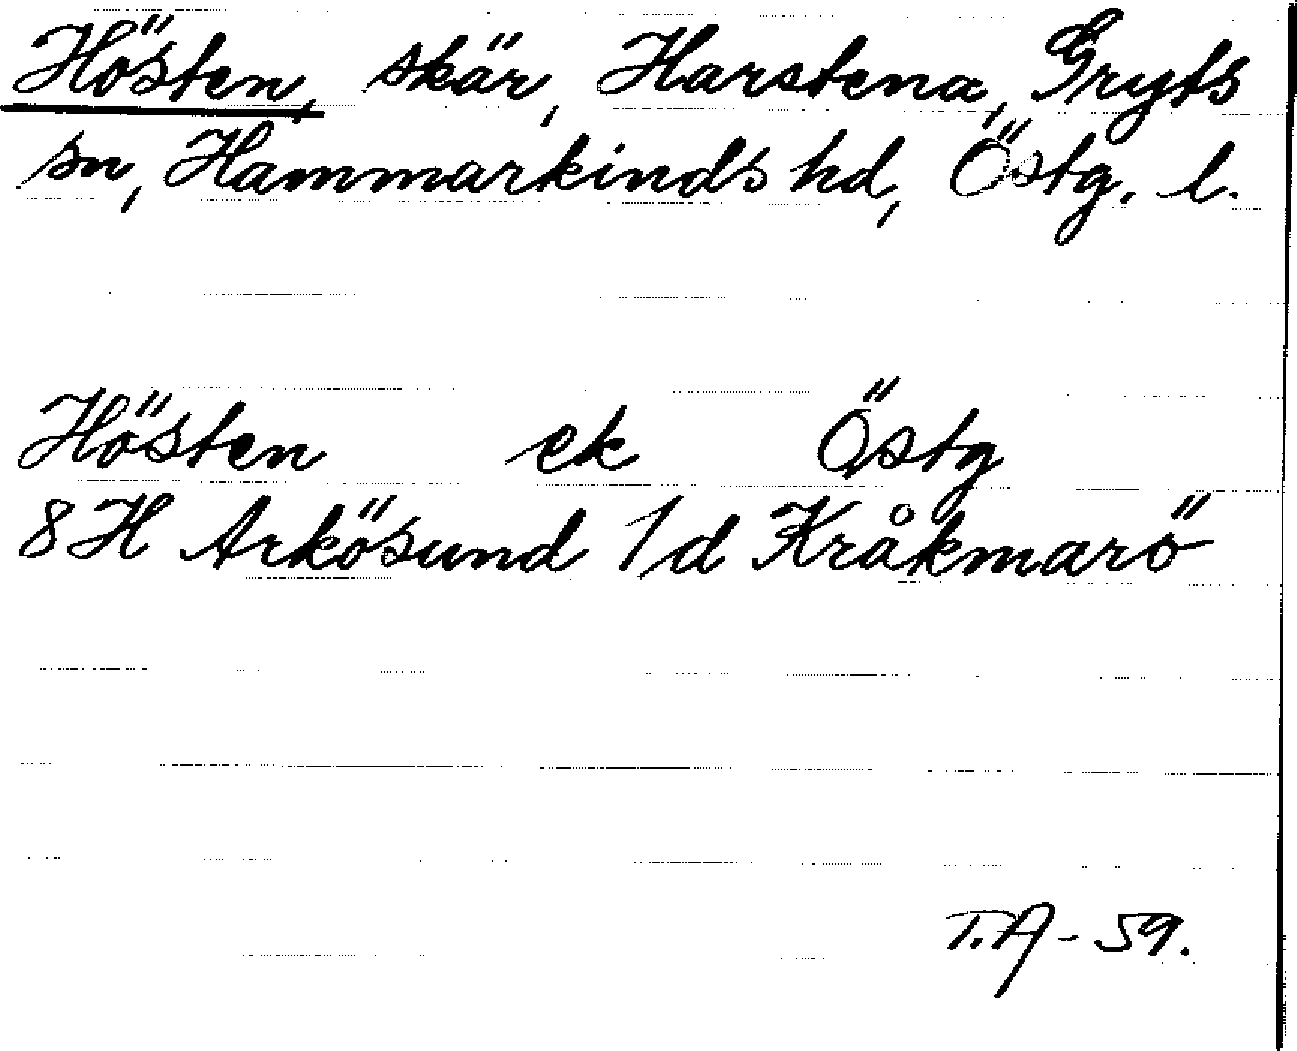 Hösten, skär, Harstena, Gryts
sn, Hammarkinds hd, Östg. l.
Hösten ek Östg
8H Arkösund 1d Kråkmarö
T.A-59.